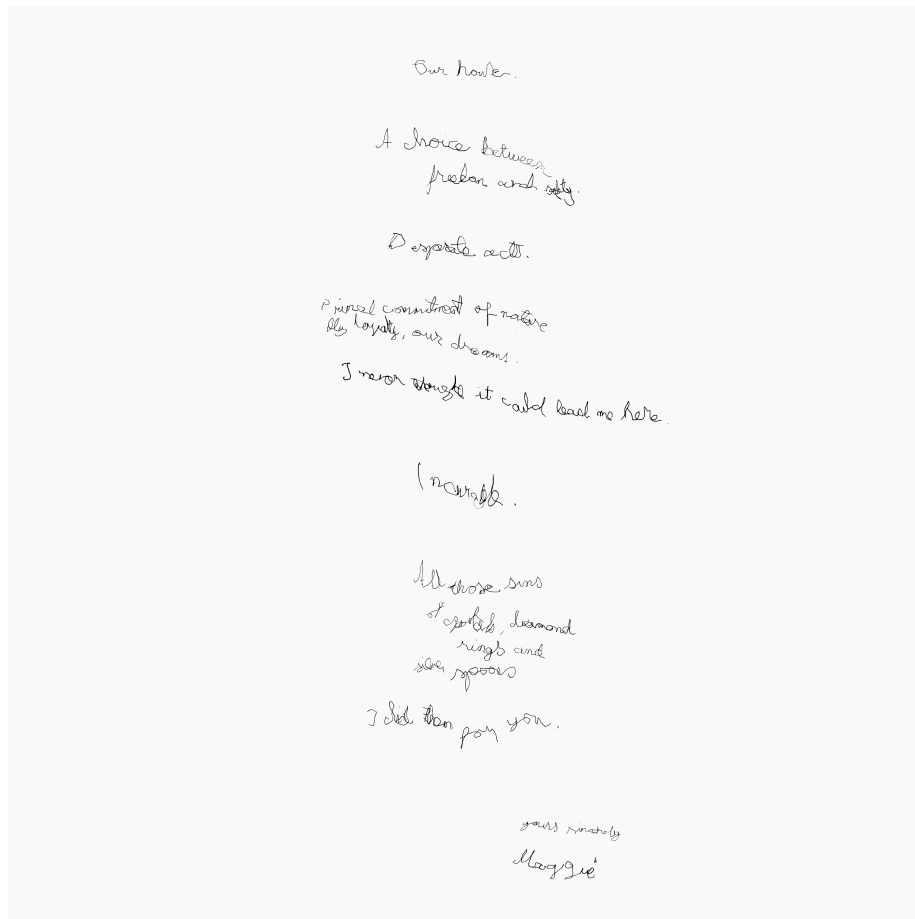 Our house.
A choice between
freedom and safety.
Desperate acts.
Primal commitment of nature
My loyalty, our dreams.
I never thought it could lead me here.
Incurable.
All those sins
of crystals, diamond
rings and
silver spoons
I hid them for you.
yours sincerely
Maggie